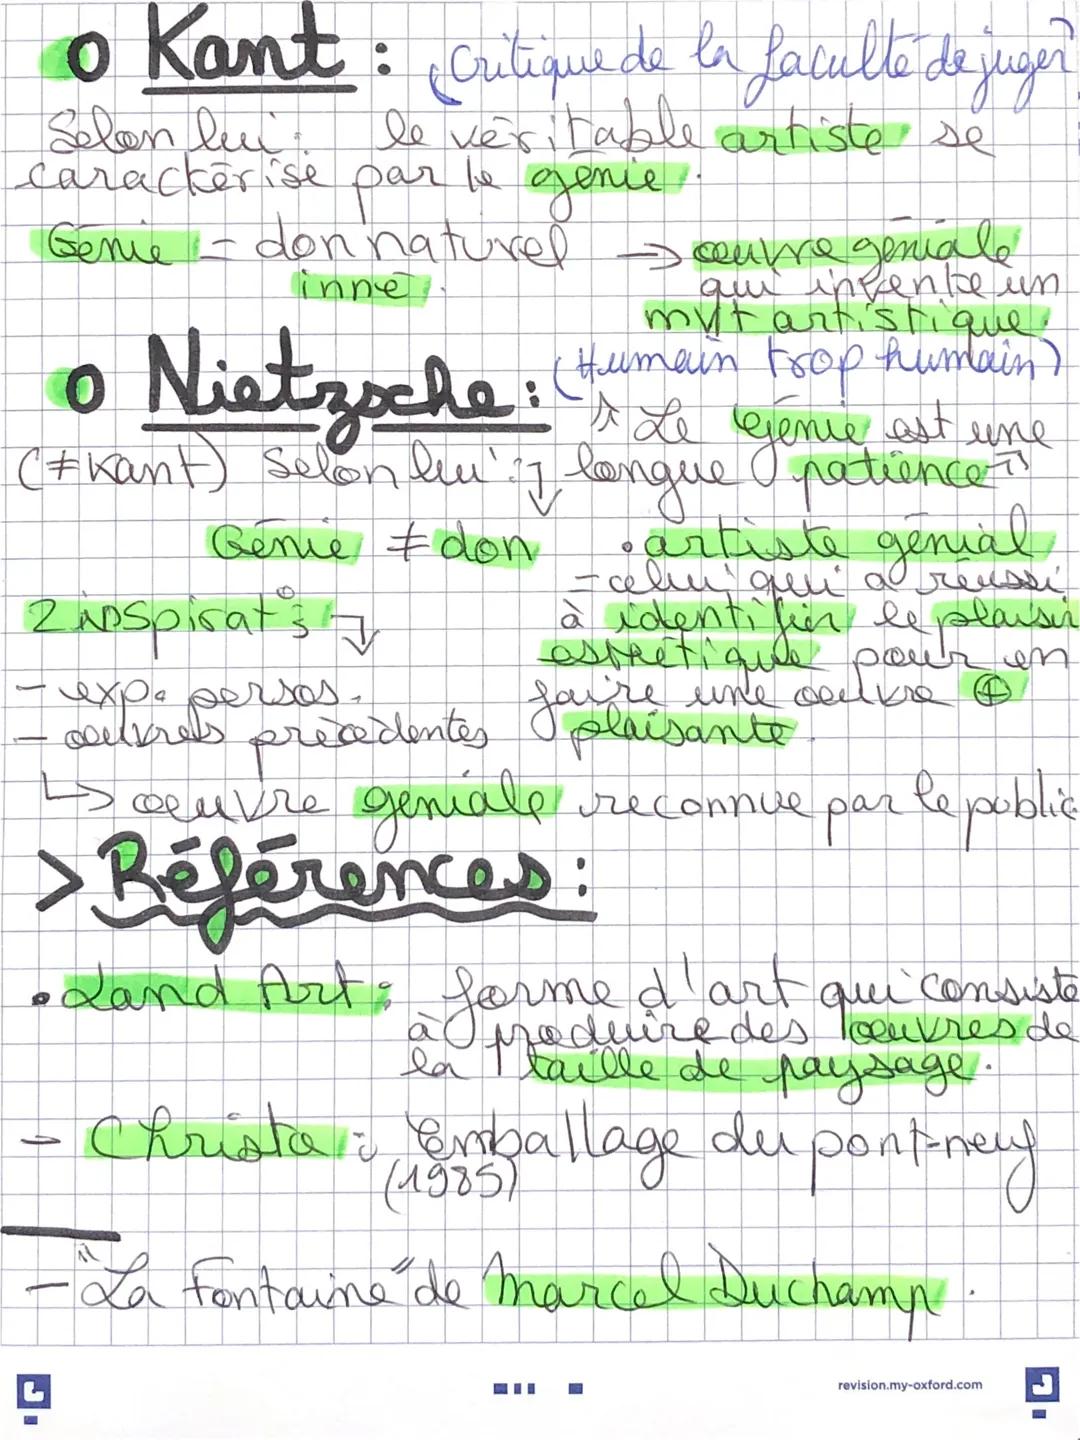 o Kant : (Critique de la faculté de juger)
Selon lui : le véritable artiste se
caractérise par le génie.
Génie = don naturel → œuvre géniale
inné. qui invente un
mvt artistique.
o Nietzsche : (Humain trop humain)
« Le génie est une
(≠Kant) Selon lui : ↴ longue patience »
Génie ≠ don • artiste génial
= celui qui a réussi
2 inspirat° : ↴ à identifier le plaisir
esthétique pour en
- exp. persos. faire une œuvre ⊕
- œuvres précédentes plaisante.
↳ œuvre géniale reconnue par le public
> Références :
• Land Art : forme d'art qui consiste
à produire des œuvres de
la taille de paysage.
- Christo : Emballage du pont-neuf
(1985)
- "La Fontaine" de Marcel Duchamp.
revision.my-oxford.com